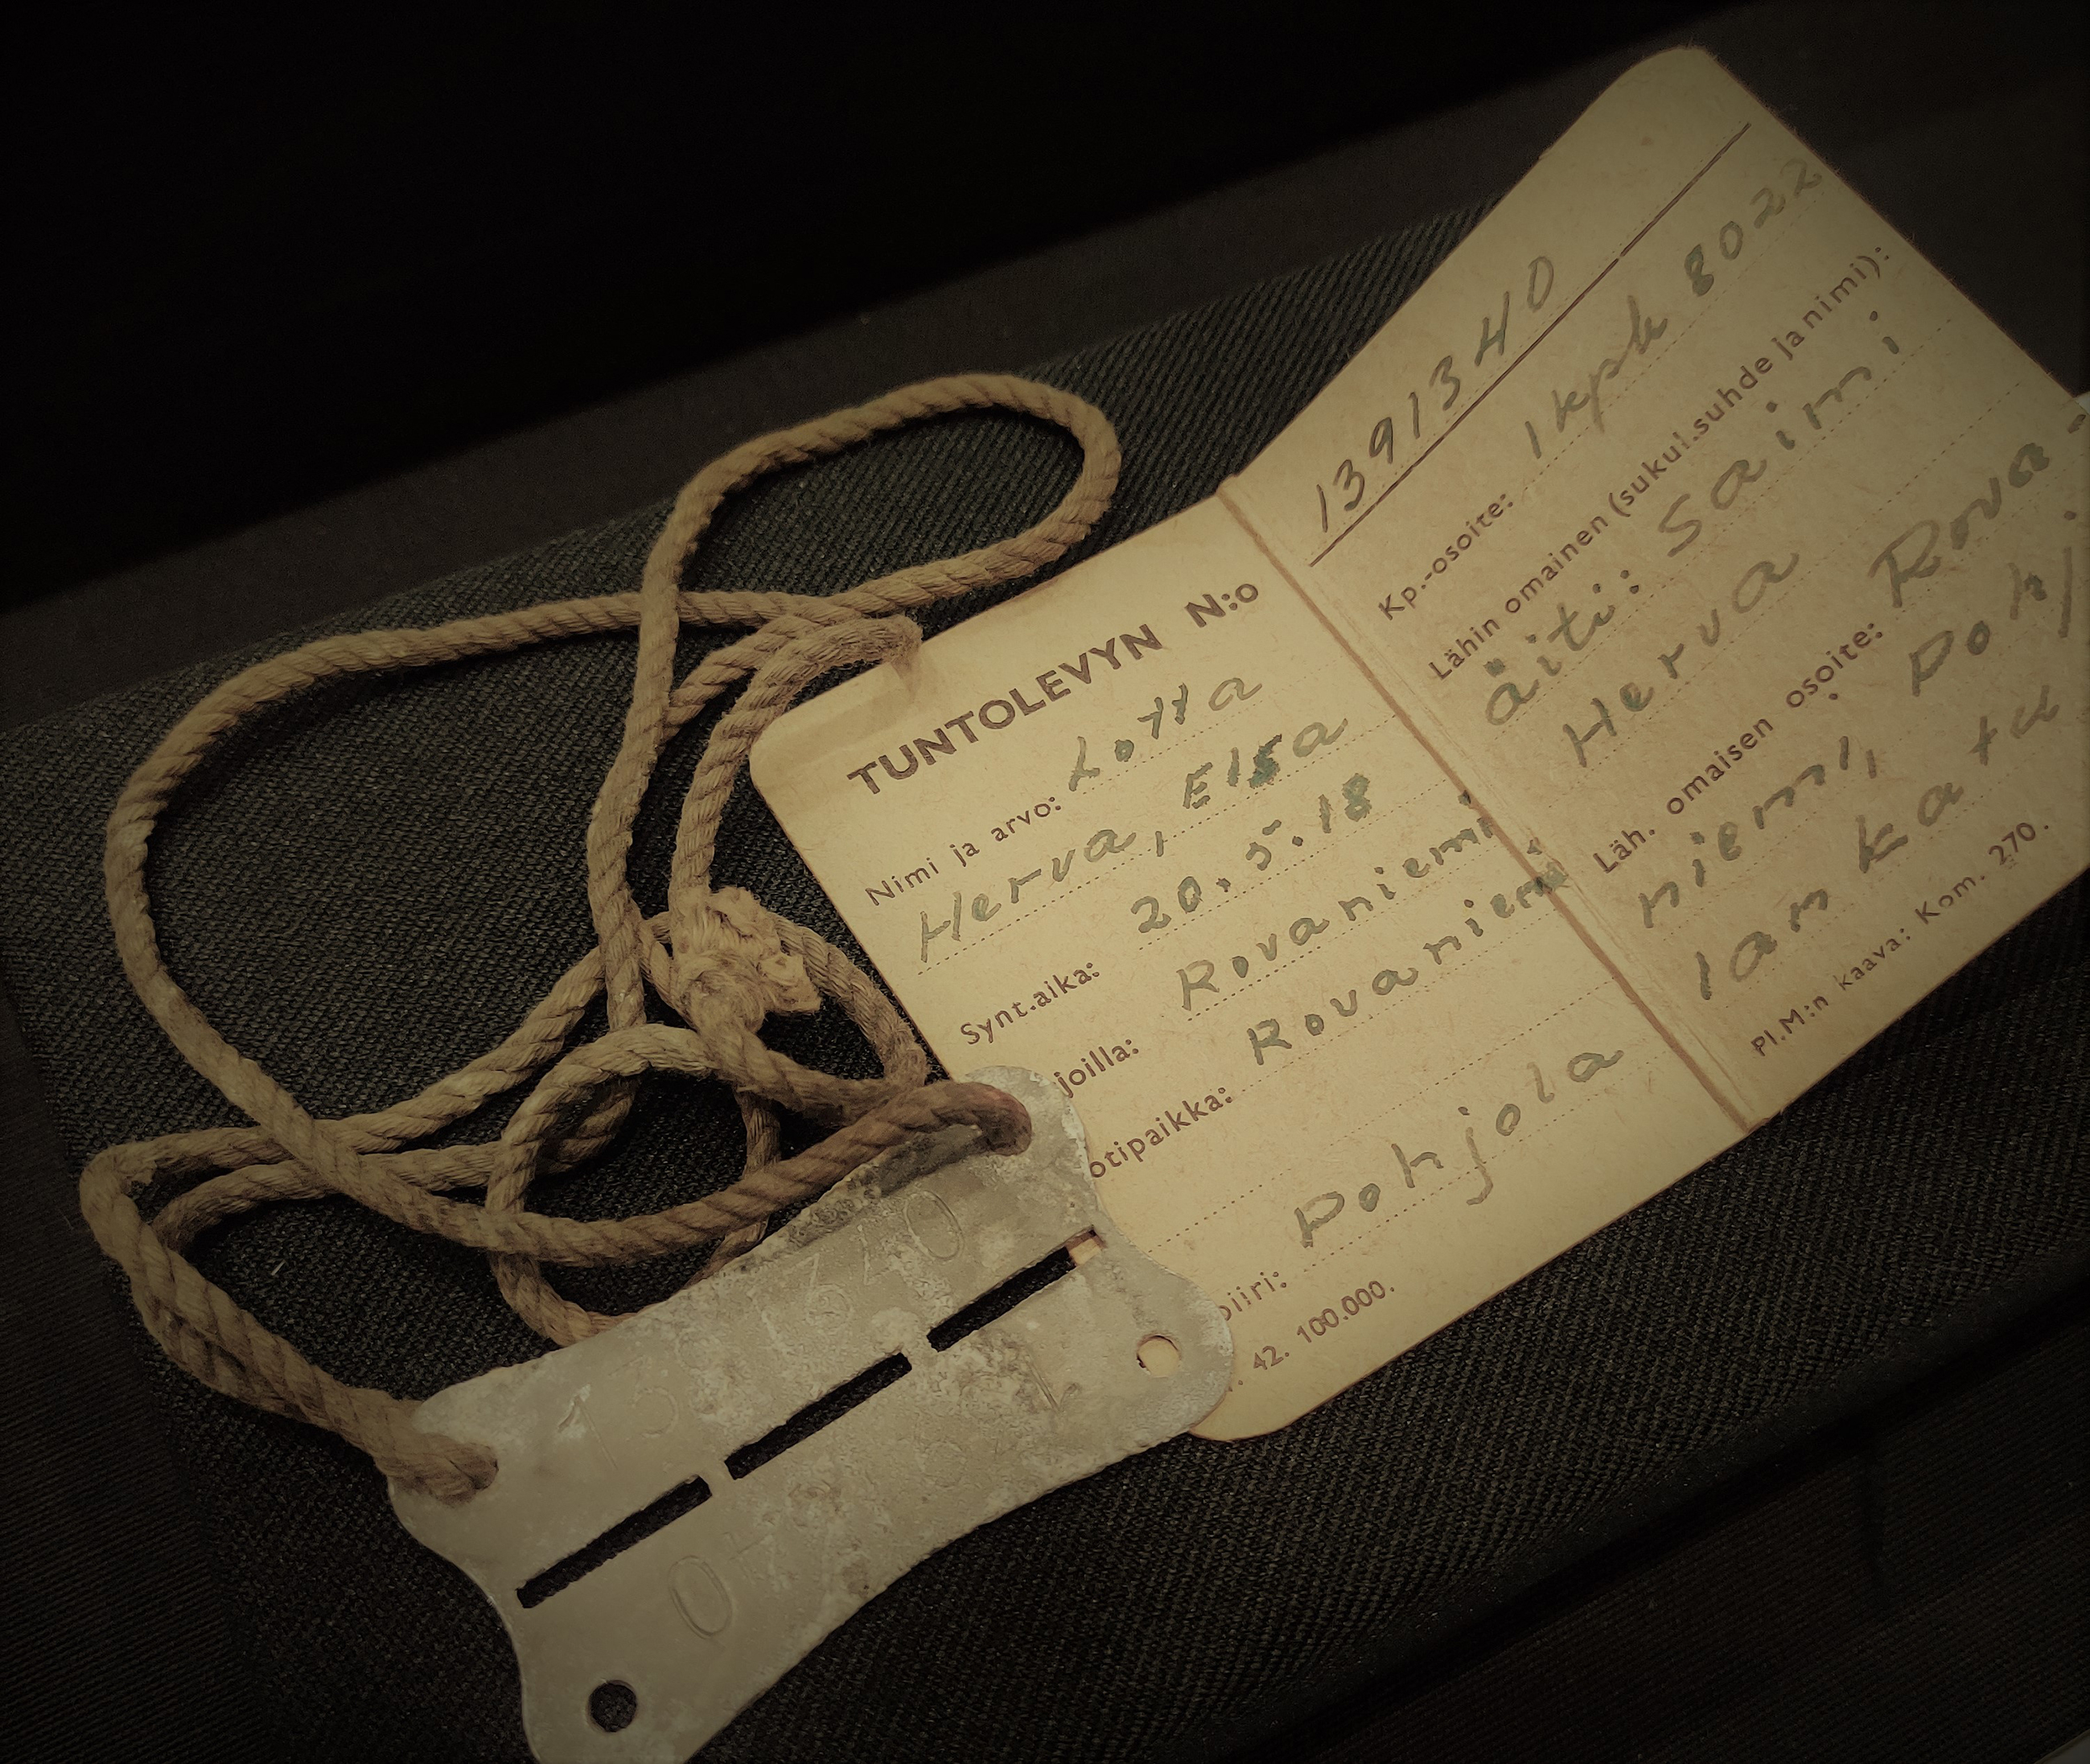 TUNTOLEVYN N:o
Nimi ja arvo: Lotta
Herva, Elsa
Synt.aika: 20.5.18
joilla: Rovaniemi
otipaikka: Rovaniemi
piiri: Pohjola
42. 100.000.
1391340
Kp.-osoite: 1 kpk 8022
Lähin omainen (sukul.suhde ja nimi):
äiti: Saimi
Herva
Läh. omaisen osoite: Rova-
niemi, Pohj
lan katu
Pl.M:n kaava: Kom. 270.
1391340